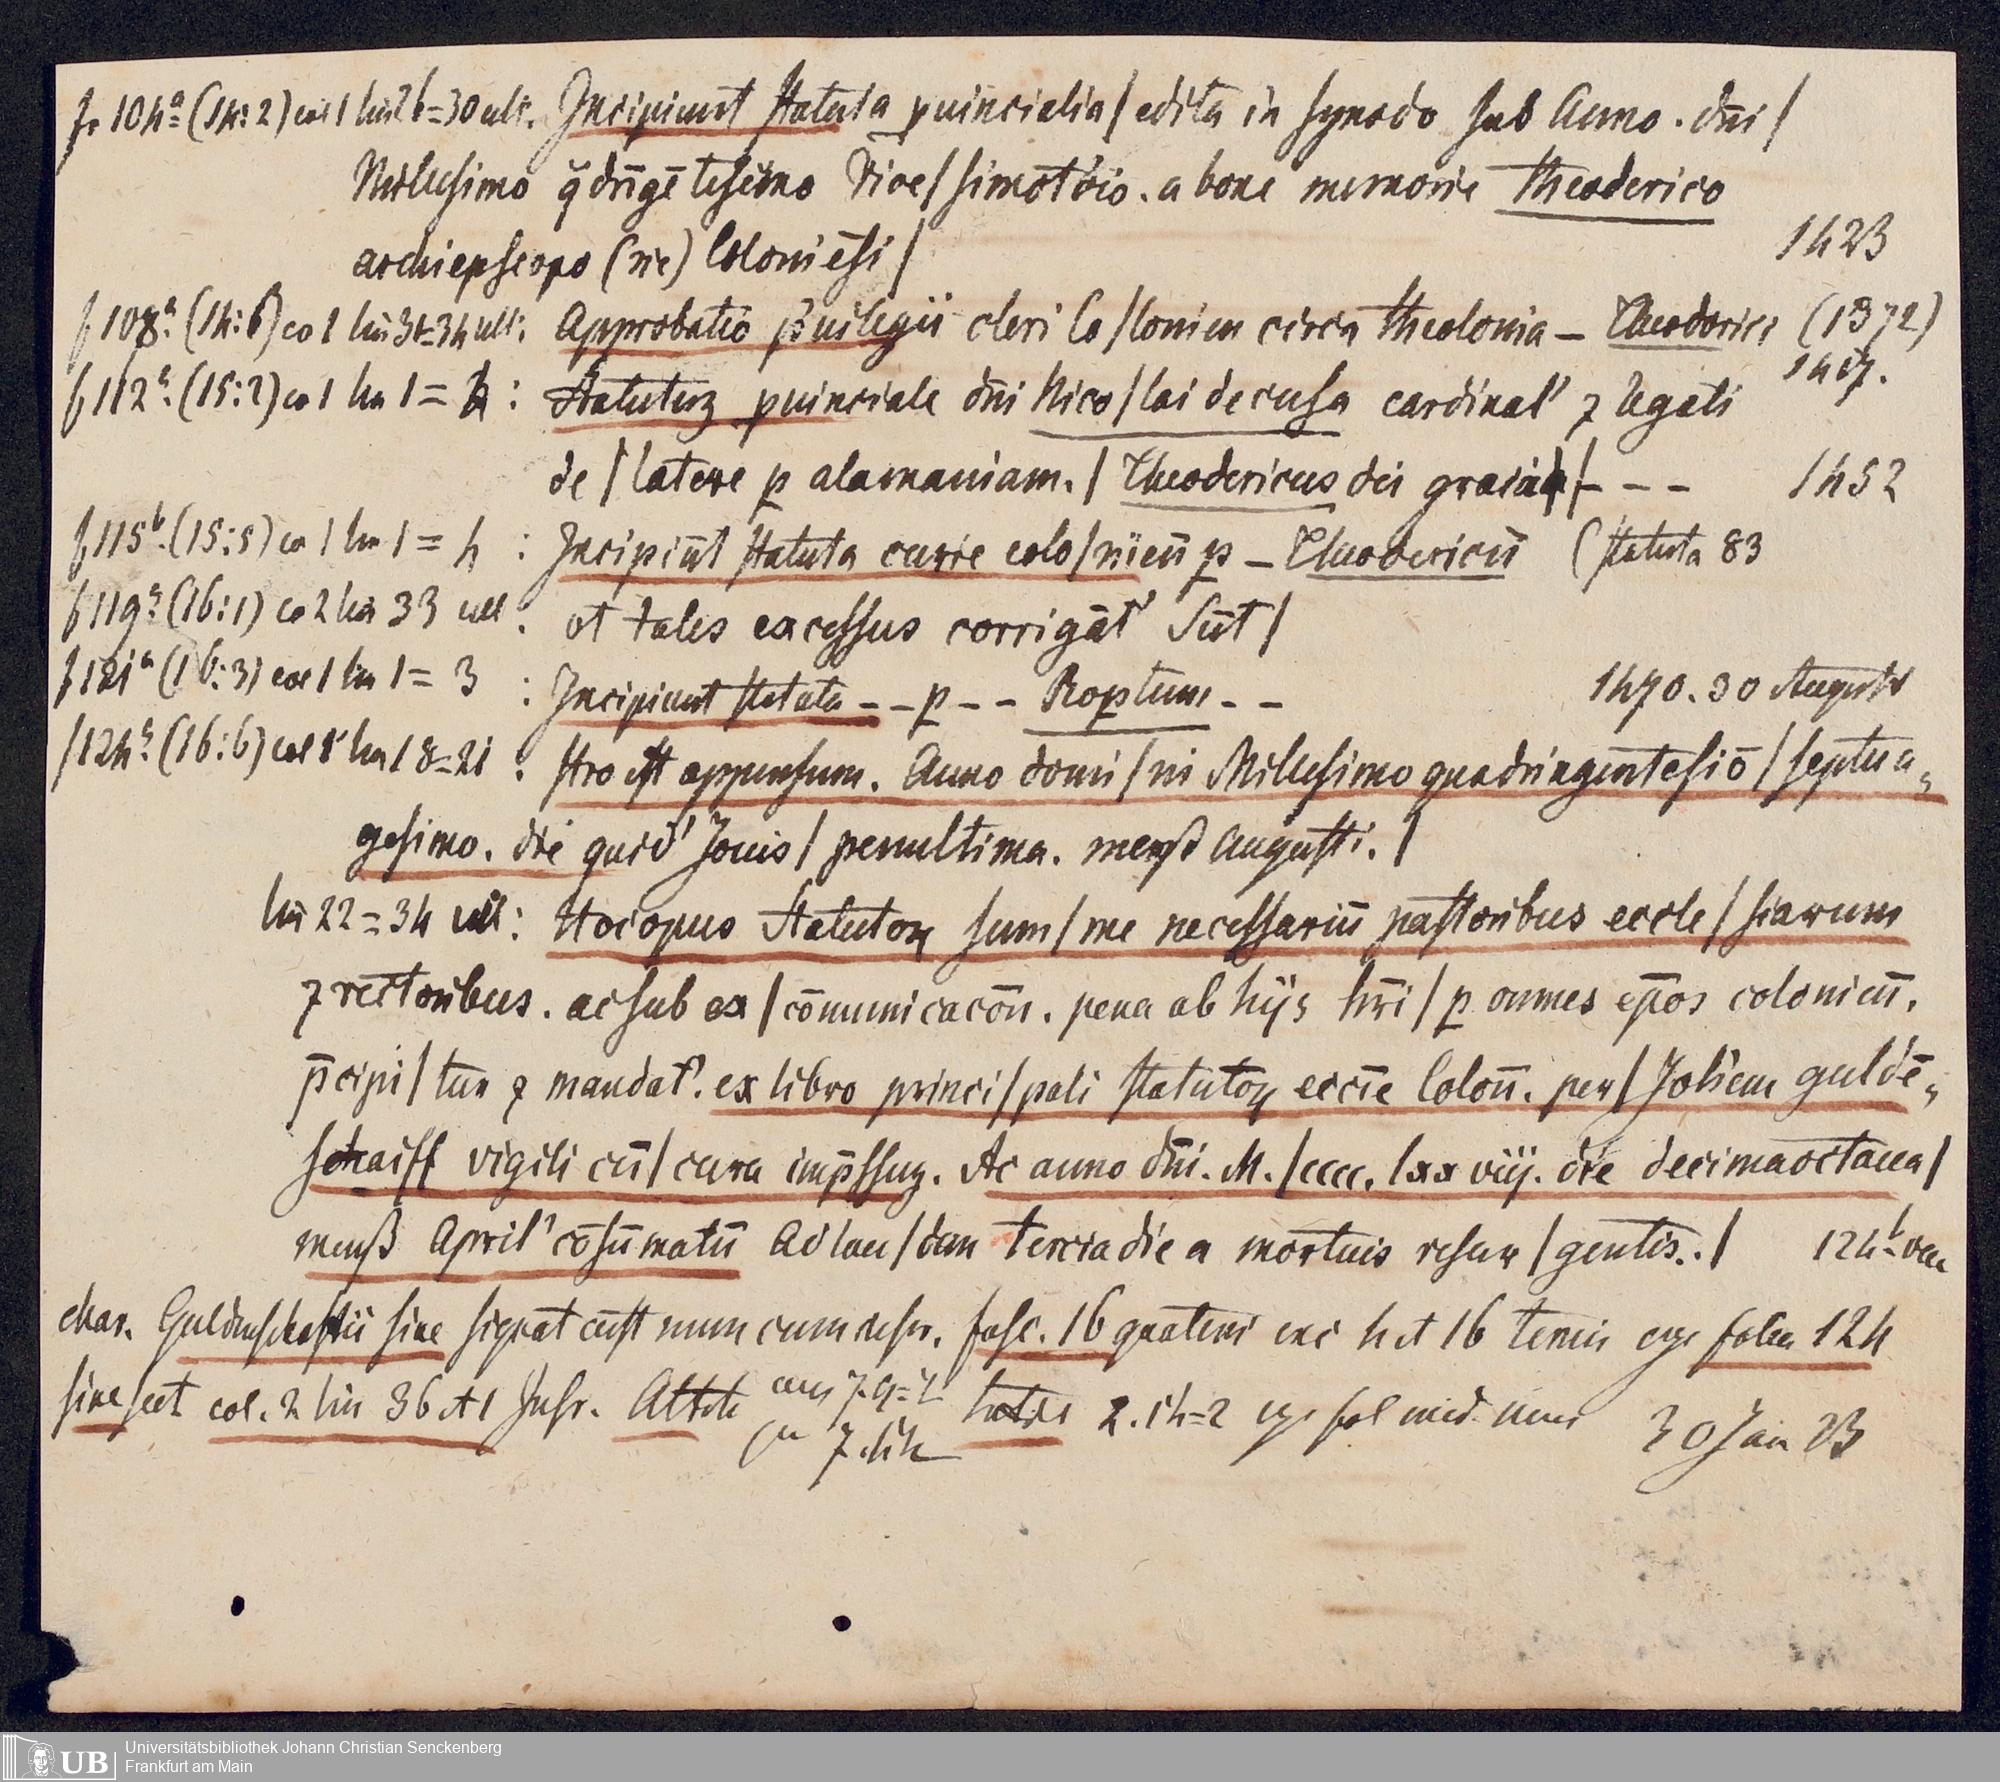 f. 104ᵃ (14:2) col 1 lin 26=30 ult. Incipiunt statuta puincialia / edita in synodo sub Anno . dñi /
Millesimo q̄drīgētesimo vice / simotc̄io . a bone memorie theoderico
archiepscopo (sic) Coloniēsi / 1423
f 108ᵃ: (14:6) co 1 lin 31=34 ult: Approbatio p̄uilegii cleri Co / lonien circa theolonia – Theodorici (1372)
f 112ᵃ: (15:2) co 1 lin 1 = 4 : Statutuʒ puinciale dñi Nico / lai de cusa cardinal' ⁊ legati
de / latere p alamaniam. / Theodericus dei gracia / - - - 1452
f 115ᵇ. (15:5) co 1 lin 1 = 4 : Incipiūt statuta curie colo / niēn̄ p – Theodericū (statuta 83
f 119ᵃ: (16:1) co 2 lin 33 ult : ot tales excessus corrigāt' Sūt /
f 121ᵃ (16:3) col 1 lin 1 = 3 : Incipiunt statuta - - p - - Roptum - - 1470. 30 August
f 124ᵃ: (16:6) col 1 lin 18=21 : stro est appensum. Anno domi / ni Millesimo quadringentesiō / septua„
gesimo. die quid' Jouis / penultima. menß Augusti. /
lin 22 = 34 ult : Hoc opus Statutoꝝ sum / me necessariū pastoribus eccle / siarum
⁊ rectoribus . ac sub ex / cōmunicacōn̄ . pena ab hijs hr̄i / p omnes ep̄os colonien̄.
p̄cipi / tur ⁊ mandat'. ex libro princi / pali statutoꝝ eccīe Colon̄. per / Joh'em guldē„
schaiff vigili cū / cura imp̄ssuʒ. Ac anno dñi. M. / cccc. lxxviij. die decimaoctaua /
menß April' cōsūmatū Ad lau / dem tercia die a mortuis resur / gentis.. / 124ᵇ vac
char. Guldenschaffii sine signat cust num cum resr. fasc. 16 quaterni exc 4 et 16 terni ergo folia 124
sine sect col. 2 lin 36 et 1 Infr.
30 Jan 23
Universitätsbibliothek Johann Christian Senckenberg
Frankfurt am Main
UB